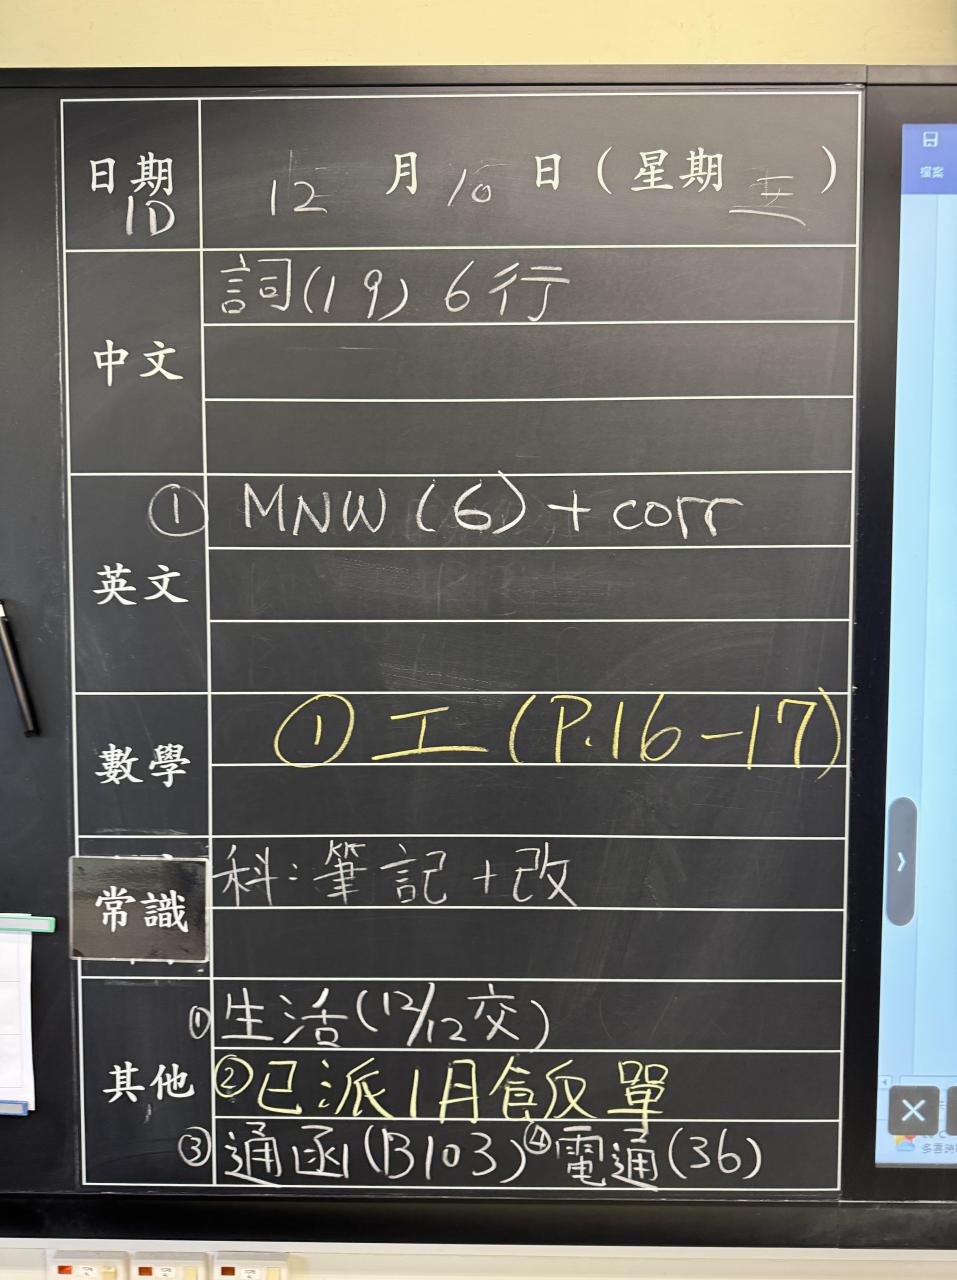 日期 12月10日(星期五)
1D
中文 詞(19) 6行
英文 ① MNW(6)+corr
數學 ① 工(P.16-17)
常識 科:筆記+改
其他 ① 生活(12/12交)
② 已派1月飯單
③ 通函(B103) ④ 電通(36)
檔案